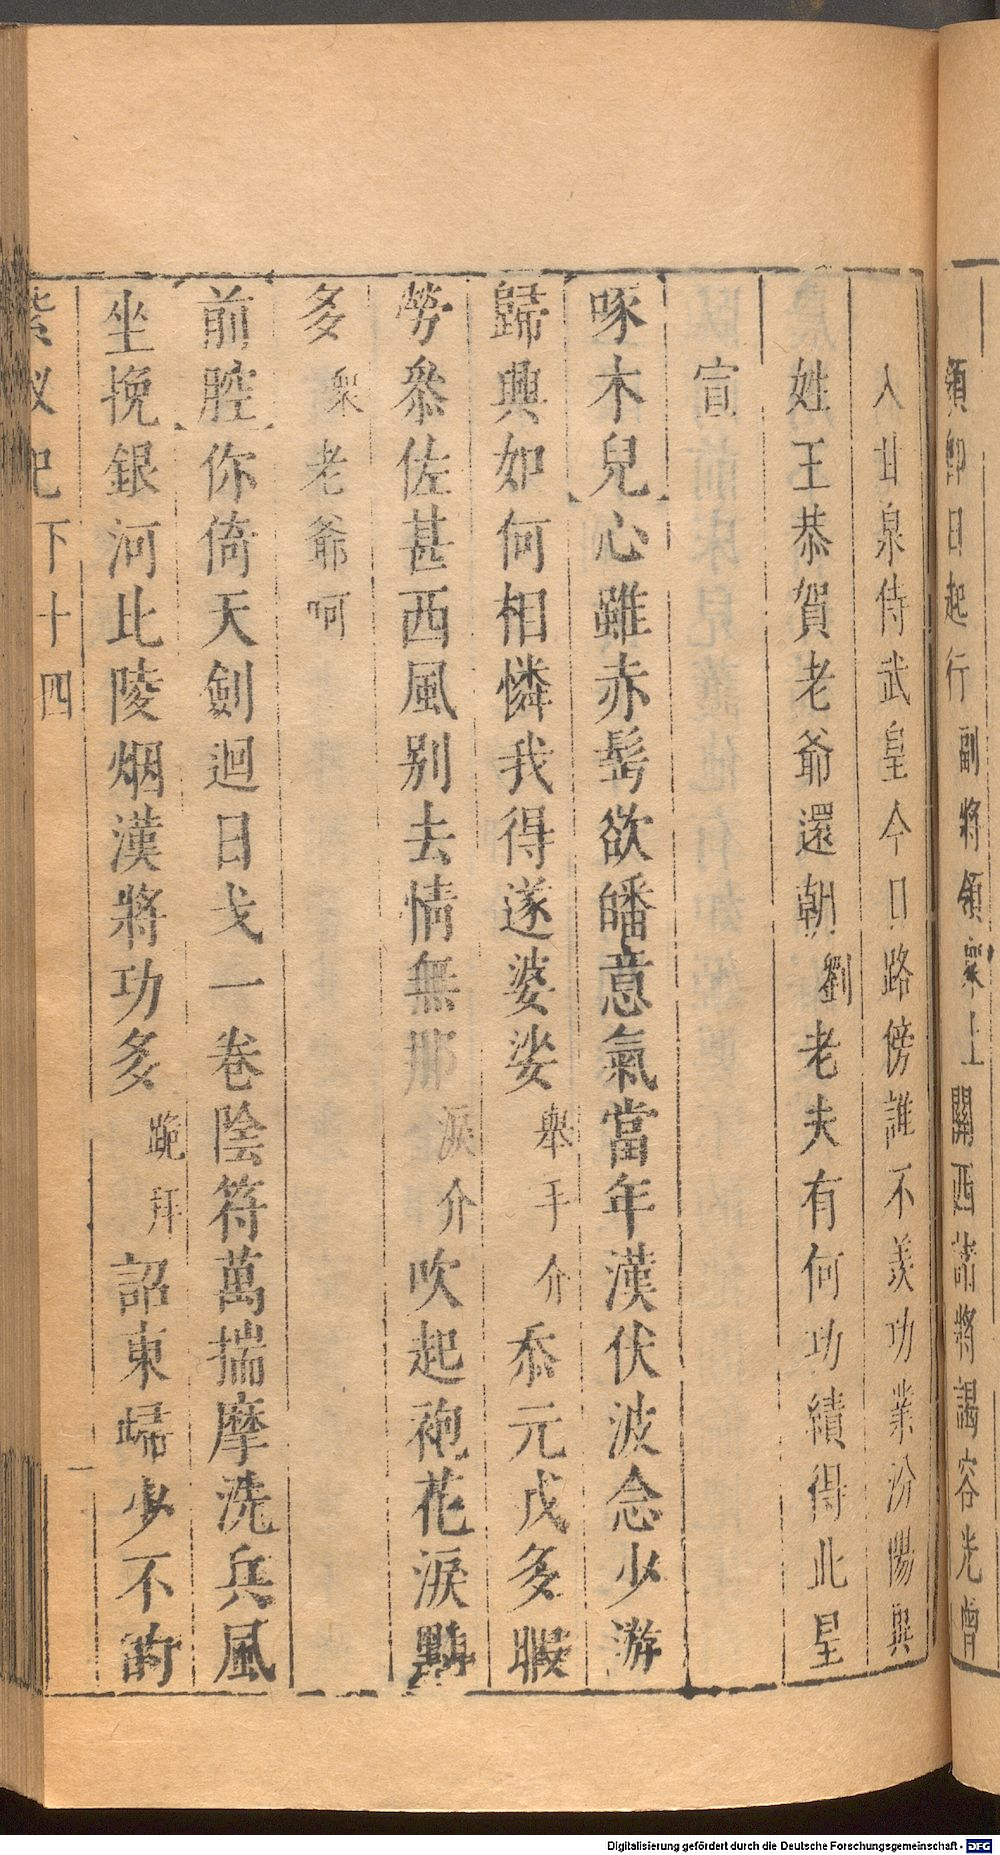 領卽日起行副將領衆上關西諸將謁容光曾
入甘泉侍武皇今日路傍誰不羨功業汾陽與
姓王恭賀老爺還朝劉老夫有何功績得此星
宣
啄木兒心雖赤髩欲皤意氣當年漢伏波念少游
歸興如何相憐我得遂婆娑舉手介忝元戎多暇
勞叅佐甚西風别去情無那淚介吹起袍花淚點
多衆老爺呵
前腔你倚天劍迴日戈一卷陰符萬揣摩洗兵風
坐挽銀河比陵烟漢將功多跪拜詔東歸少不的
紫釵記下十四
Digitalisierung gefördert durch die Deutsche Forschungsgemeinschaft - DFG